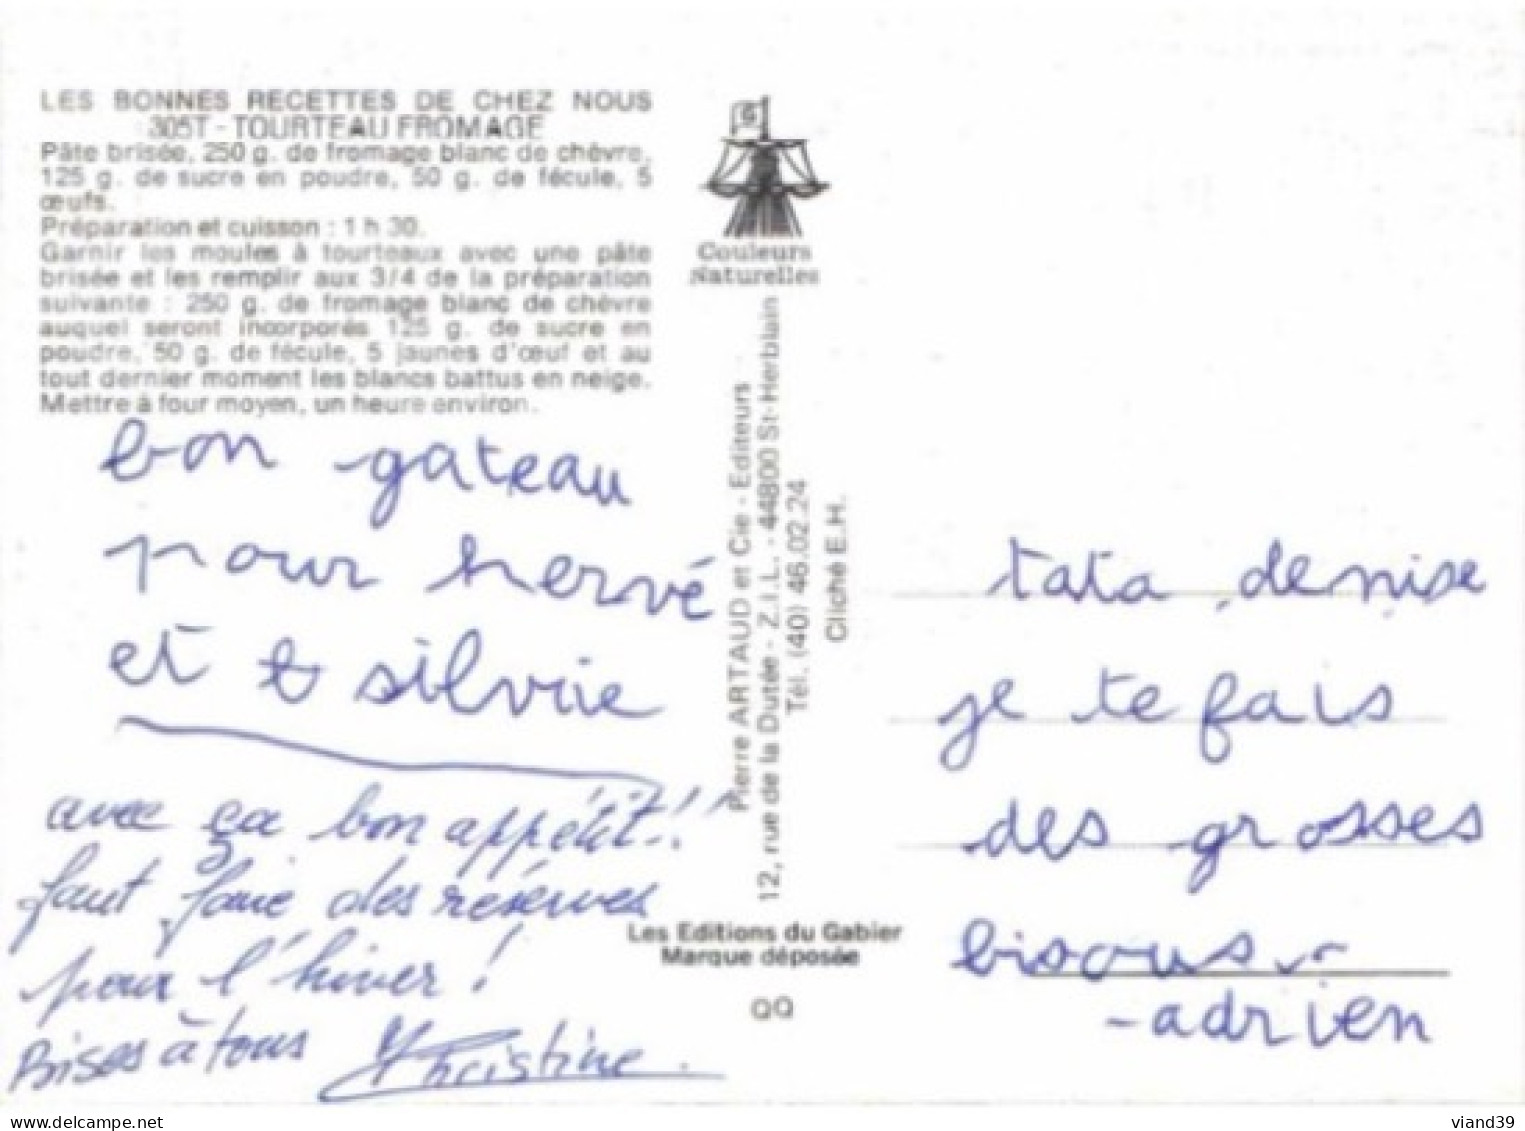 LES BONNES RECETTES DE CHEZ NOUS
305T - TOURTEAU FROMAGE
Pâte brisée, 250 g. de fromage blanc de chèvre,
125 g. de sucre en poudre, 50 g. de fécule, 5
œufs.
Préparation et cuisson : 1 h 30.
Garnir les moules à tourteaux avec une pâte
brisée et les remplir aux 3/4 de la préparation
suivante : 250 g. de fromage blanc de chèvre
auquel seront incorporés 125 g. de sucre en
poudre, 50 g. de fécule, 5 jaunes d'œuf et au
tout dernier moment les blancs battus en neige.
Mettre à four moyen, un heure environ.
bon gateau
pour hervé
et silvie
avec ça bon appétit !!
faut faire des réserves
pour l'hiver !
Bises à tous Christine.
G
Couleurs
Naturelles
Pierre ARTAUD et Cie - Editeurs
12, rue de la Dutée - Z.I.L. - 44800 St-Herblain
Tél. (40) 46.02.24
Cliché E.H.
Les Editions du Gabier
Marque déposée
QQ
tata denise
je te fais
des grosses
bisous
- adrien
delcampe.net
viand39